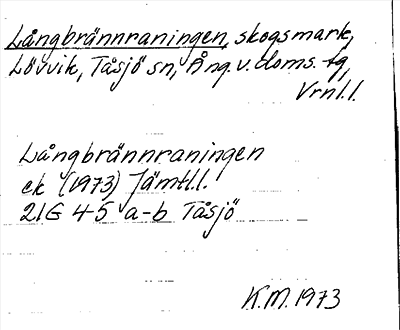 Långbrännraningen, skogsmark,
Lövvik, Tåsjö sn, Ång. v. doms. tg,
Vrnl. l.
Långbrännraningen
ek (1973) Jämtl. l.
21G 4-5 a-b Tåsjö
K.M. 1973